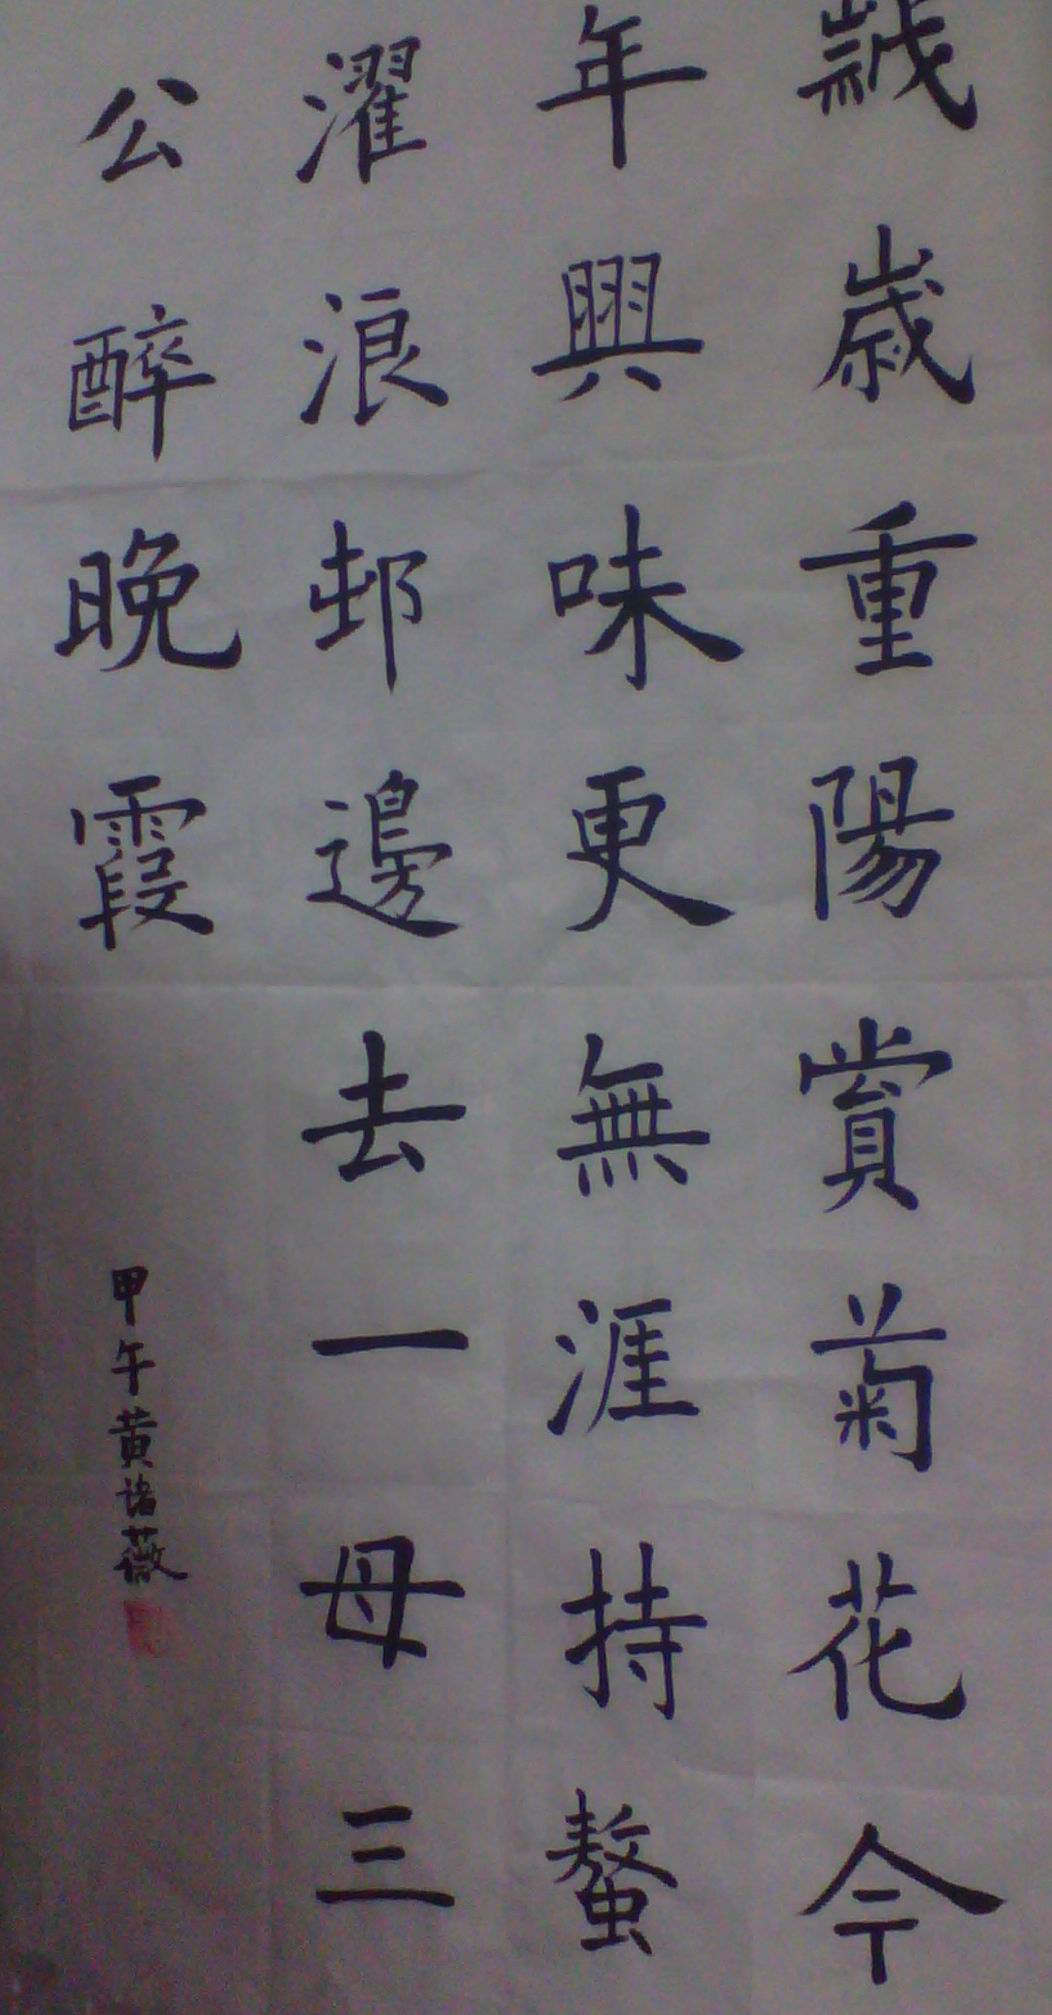 歲歲重陽賞菊花今
年興味更無涯持螯
濯浪邨邊去一母三
公醉晚霞
甲午黄诺薇